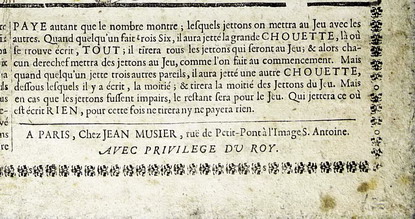 PAYE autant que le nombre montre; leſquels jettons on mettra au Jeu avec les
autres. Quand quelqu'un fait trois Six, il aura jetté la grande CHOUETTE, là où
ſe trouve écrit, TOUT; il tirera tous les jettons qui ſeront au Jeu; & alors cha-
cun derechef mettra des jettons au Jeu, comme l'on fait au commencement. Mais
quand quelqu'un jette trois autres pareils, il aura jetté une autre CHOUETTE,
deſſous leſquels il y a écrit, la moitié; & tirera la moitié des Jettons du Jeu. Mais
en cas que les jettons fuſſent impairs, le reſtant ſera pour le Jeu. Qui jettera ce où
eſt écrit RIEN, pour cette fois ne tirera ny ne payera rien.
A PARIS, Chez JEAN MUSIER, ruë de Petit-Pont à l'Image S. Antoine.
AVEC PRIVILEGE DU ROY.